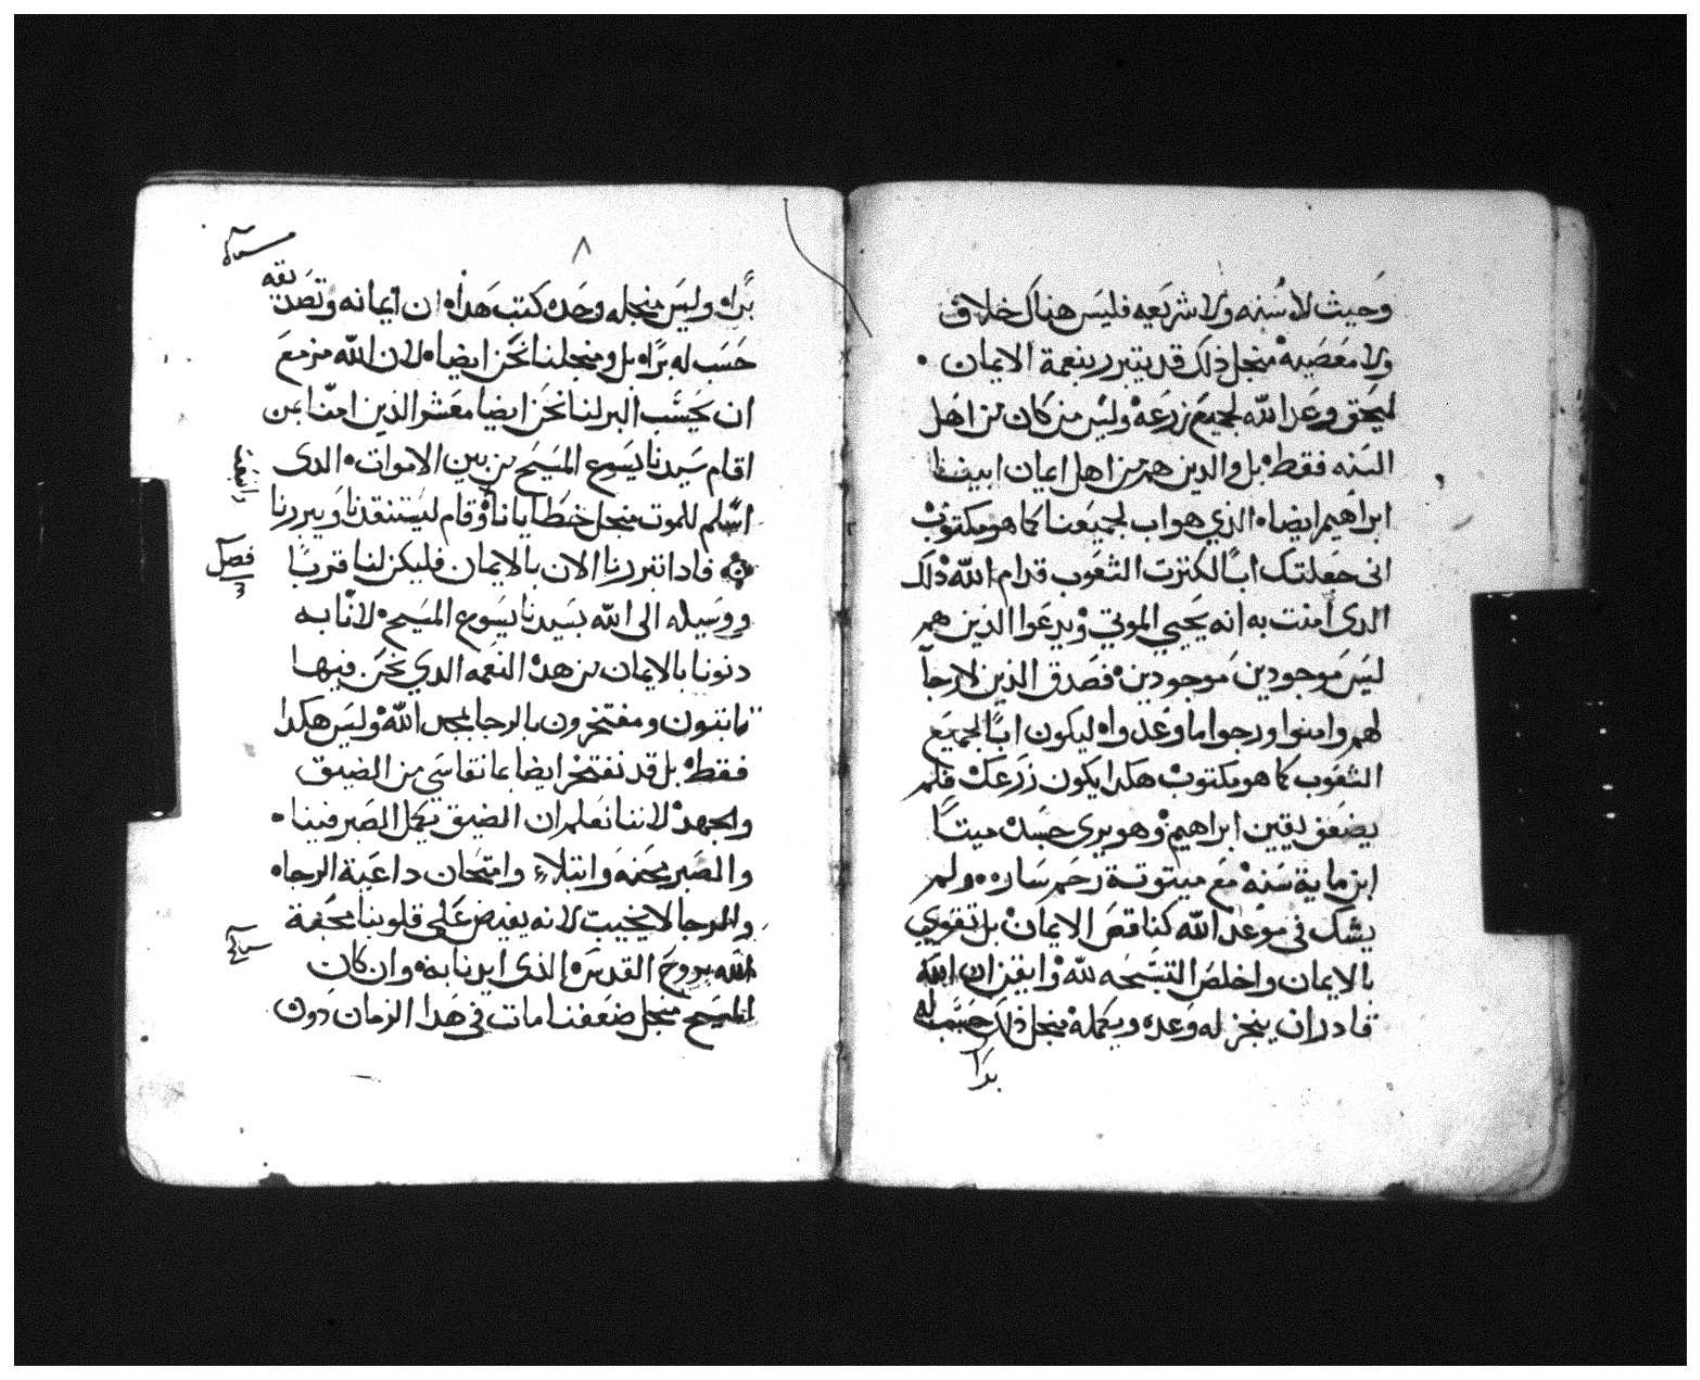 وحيث لا سنه ولا شريعه فليس هناك خلاف
ولا معصيه منجل ذلك قد يتبرر بنعمة الايمان
ليحق وعد الله لجميع زرعه وليس من كان من اهل
السنه فقط بل والدين هم من اهل ايمان ابينا
ابراهيم ايضا الذي هو اب لجميعنا كما هو مكتوب
انى جعلتك ابًا لكثرت الشعوب قدام الله ذلك
الدى امنت به انه يحيي الموتي ويدعوا الذين هم
ليس موجودين موجودين فصدق الذين لا رجا
لهم وامنوا ورجوا ما وعدواه ليكون ابًا لجميع
الشعوب كما هو مكتوب هكدا يكون زرعك فلم
يضعف يقين ابراهيم وهو يرى جسده ميتًا
ابن ماية سنه مع ميتوتة رحم ساره ولم
يشك في موعد الله كناقص الايمان بل تقوي
بالايمان واخلص التسبحه لله وايقن ان الله
قادر ان ينجز له وعده ويكمله منجل ذلك حسب له
برا
٨
برًا وليس منجله وحده كتب هدا ان ايمانه وتصديقه
حسب له برًا بل ومنجلنا نحن ايضا لان الله مزمع
ان يحسب البر لنا نحن ايضا معشر الدين امنا بمن
اقام سيدنا يسوع المسيح من بين الاموات الدى
اسلم للموت منجل خطايانا وقام ليستنقدنا ويبررنا
فادا تبررنا الان بالايمان فليكن لنا قربًا
فصل
ووسيله الى الله بسيدنا يسوع المسيح لانا به
دنونا بالايمان من هده النعمه الدي نحن فيها
ثابتون ومفتخرون بالرجا لمجد الله وليس هكدا
فقط بل قد نفتخر ايضا بما نقاسي من الضيق
والجهد لاننا نعلم ان الضيق يكمل الصبر فينا
والصبر محنه وابتلاء وامتحان داعية الرجا
والرجا لا يخيب لانه يفيض على قلوبنا محبة
الله بروح القدس الذى ايدنا به وان كان
المسيح منجل ضعفنا مات في هدا الزمان دون